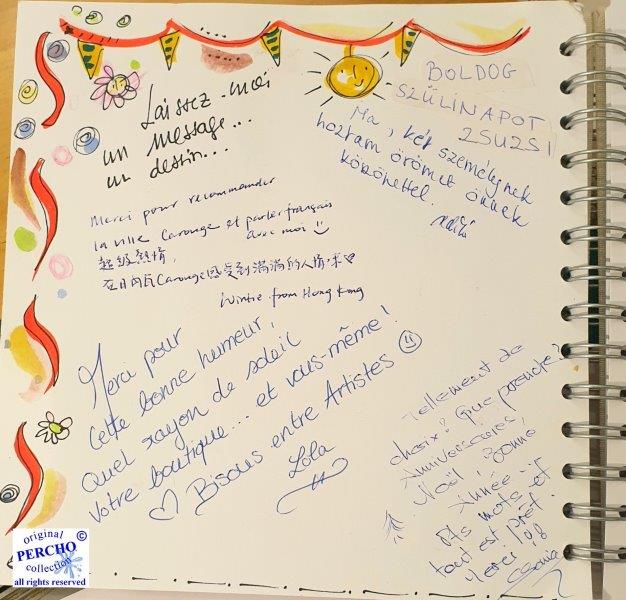 Laissez-moi
un message...
un dessin...
BOLDOG
SZÜLINAPOT
ZSUZSI
Ma, két személynek
hoztam örömet önnek
köszönettel.
Merci pour recommander
la ville Carouge et parler français
avec moi
超級熱情,
在日內瓦Carouge感受到滿滿的人情味
Winnie from Hong Kong
Merci pour
cette bonne humeur,
quel rayon de soleil
votre boutique... et vous-même!
Bisous entre Artistes
Lola
Tellement de
choix! Que prendre?
Anniversaires,
Noël, Bonne
Année...
Vos mots et
tout est prêt.
Merci
original
PERCHO ©
collection
all rights reserved